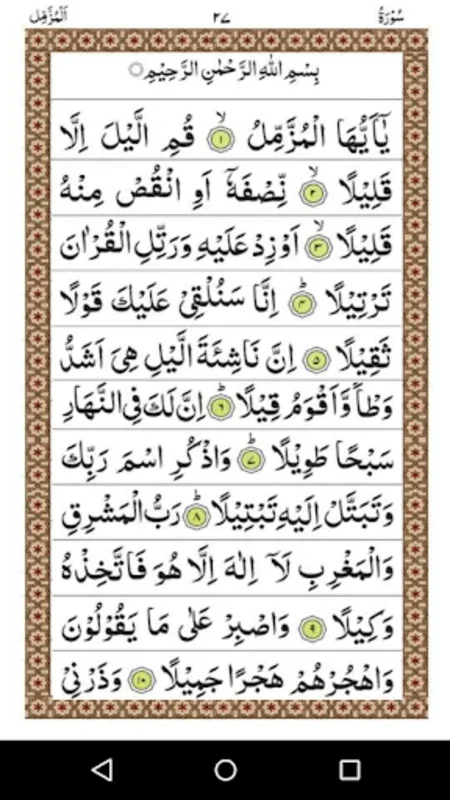 سُوْرَةُ ٢٧ اَلْمُزَّمِّل
بِسْمِ اللّٰهِ الرَّحْمٰنِ الرَّحِيْمِ
يٰۤاَيُّهَا الْمُزَّمِّلُ ۙ﴿١﴾ قُمِ الَّيْلَ اِلَّا
قَلِيْلًا ۙ﴿٢﴾ نِّصْفَهٗۤ اَوِ انْقُصْ مِنْهُ
قَلِيْلًا ۙ﴿٣﴾ اَوْ زِدْ عَلَيْهِ وَرَتِّلِ الْقُرْاٰنَ
تَرْتِيْلًا ؕ﴿٤﴾ اِنَّا سَنُلْقِيْ عَلَيْكَ قَوْلًا
ثَقِيْلًا ﴿٥﴾ اِنَّ نَاشِئَةَ الَّيْلِ هِيَ اَشَدُّ
وَطْاً وَّاَقْوَمُ قِيْلًا ؕ﴿٦﴾ اِنَّ لَكَ فِي النَّهَارِ
سَبْحًا طَوِيْلًا ؕ﴿٧﴾ وَاذْكُرِ اسْمَ رَبِّكَ
وَتَبَتَّلْ اِلَيْهِ تَبْتِيْلًا ؕ﴿٨﴾ رَبُّ الْمَشْرِقِ
وَالْمَغْرِبِ لَاۤ اِلٰهَ اِلَّا هُوَ فَاتَّخِذْهُ
وَكِيْلًا ﴿٩﴾ وَاصْبِرْ عَلٰى مَا يَقُوْلُوْنَ
وَاهْجُرْهُمْ هَجْرًا جَمِيْلًا ﴿١٠﴾ وَذَرْنِيْ